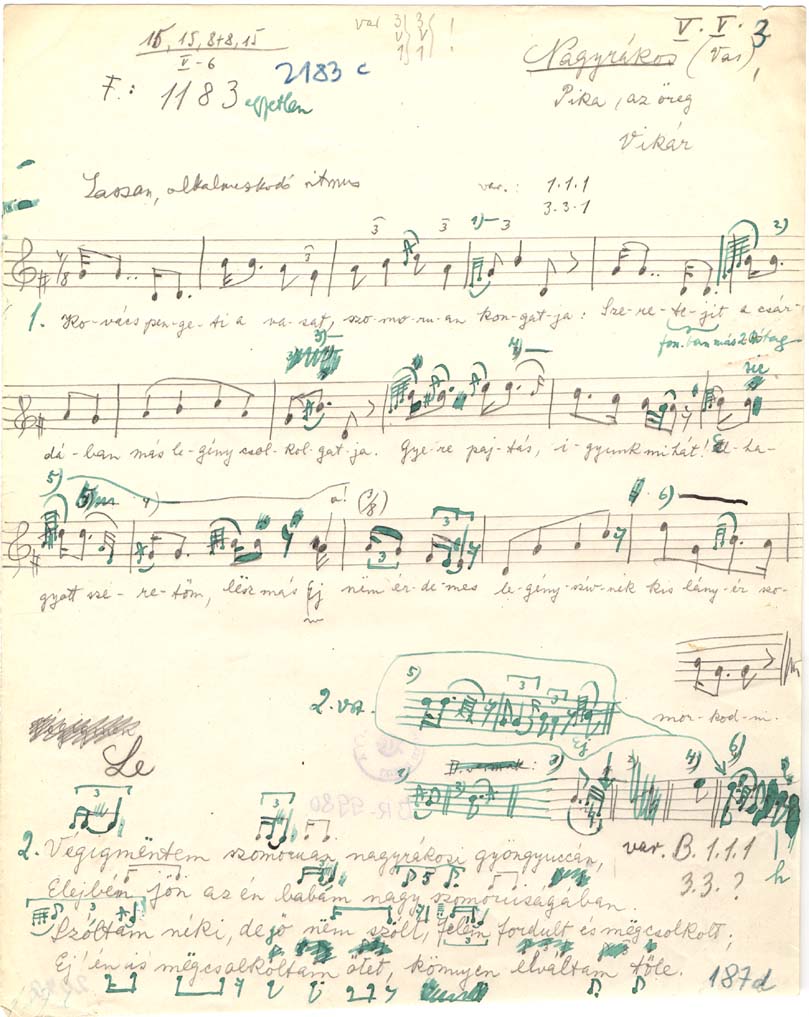 15, 15, 8+8, 15
V-6
var 3 3 !
V V
1 1
V. V. 3
2183 c
Nagyrákos (Vas)
F.: 1183 egyetlen
Pika, az öreg
Vikár
Lassan, alkalmazkodó ritmus
var.: 1.1.1
3.3.1
1. Ko-vács pen-ge-ti a va-sat, szo-mo-ru-an kon-gat-ja: Sze-re-te-jit a csár-
fon.ban más 2
dá-ban más le-gény csol-kol-gat-ja. Gye-re paj-tás, i-gyunk mi hát! El-ha-
5) 7) a! (3/8) 6)
gyott sze-re-töm, lësz más Ej nëm ér-de-mes le-gény-szív-nek kis lány-ér szo-
mor-kod-ni.
2. vsz.
5)
Ej
Le
2. Végigmëntem szomoruan nagyrákosi gyöngyuccán,
Elejbém jön az én babám nagy szomoruságában.
Szóltam néki, de jo nëm szólt, felém fordult és mëgcsolkolt;
Ej én is mëgcsolkoltam ötet, könnyen elváltam tőle.
var. B. 1.1.1
3.3.?
h
187d